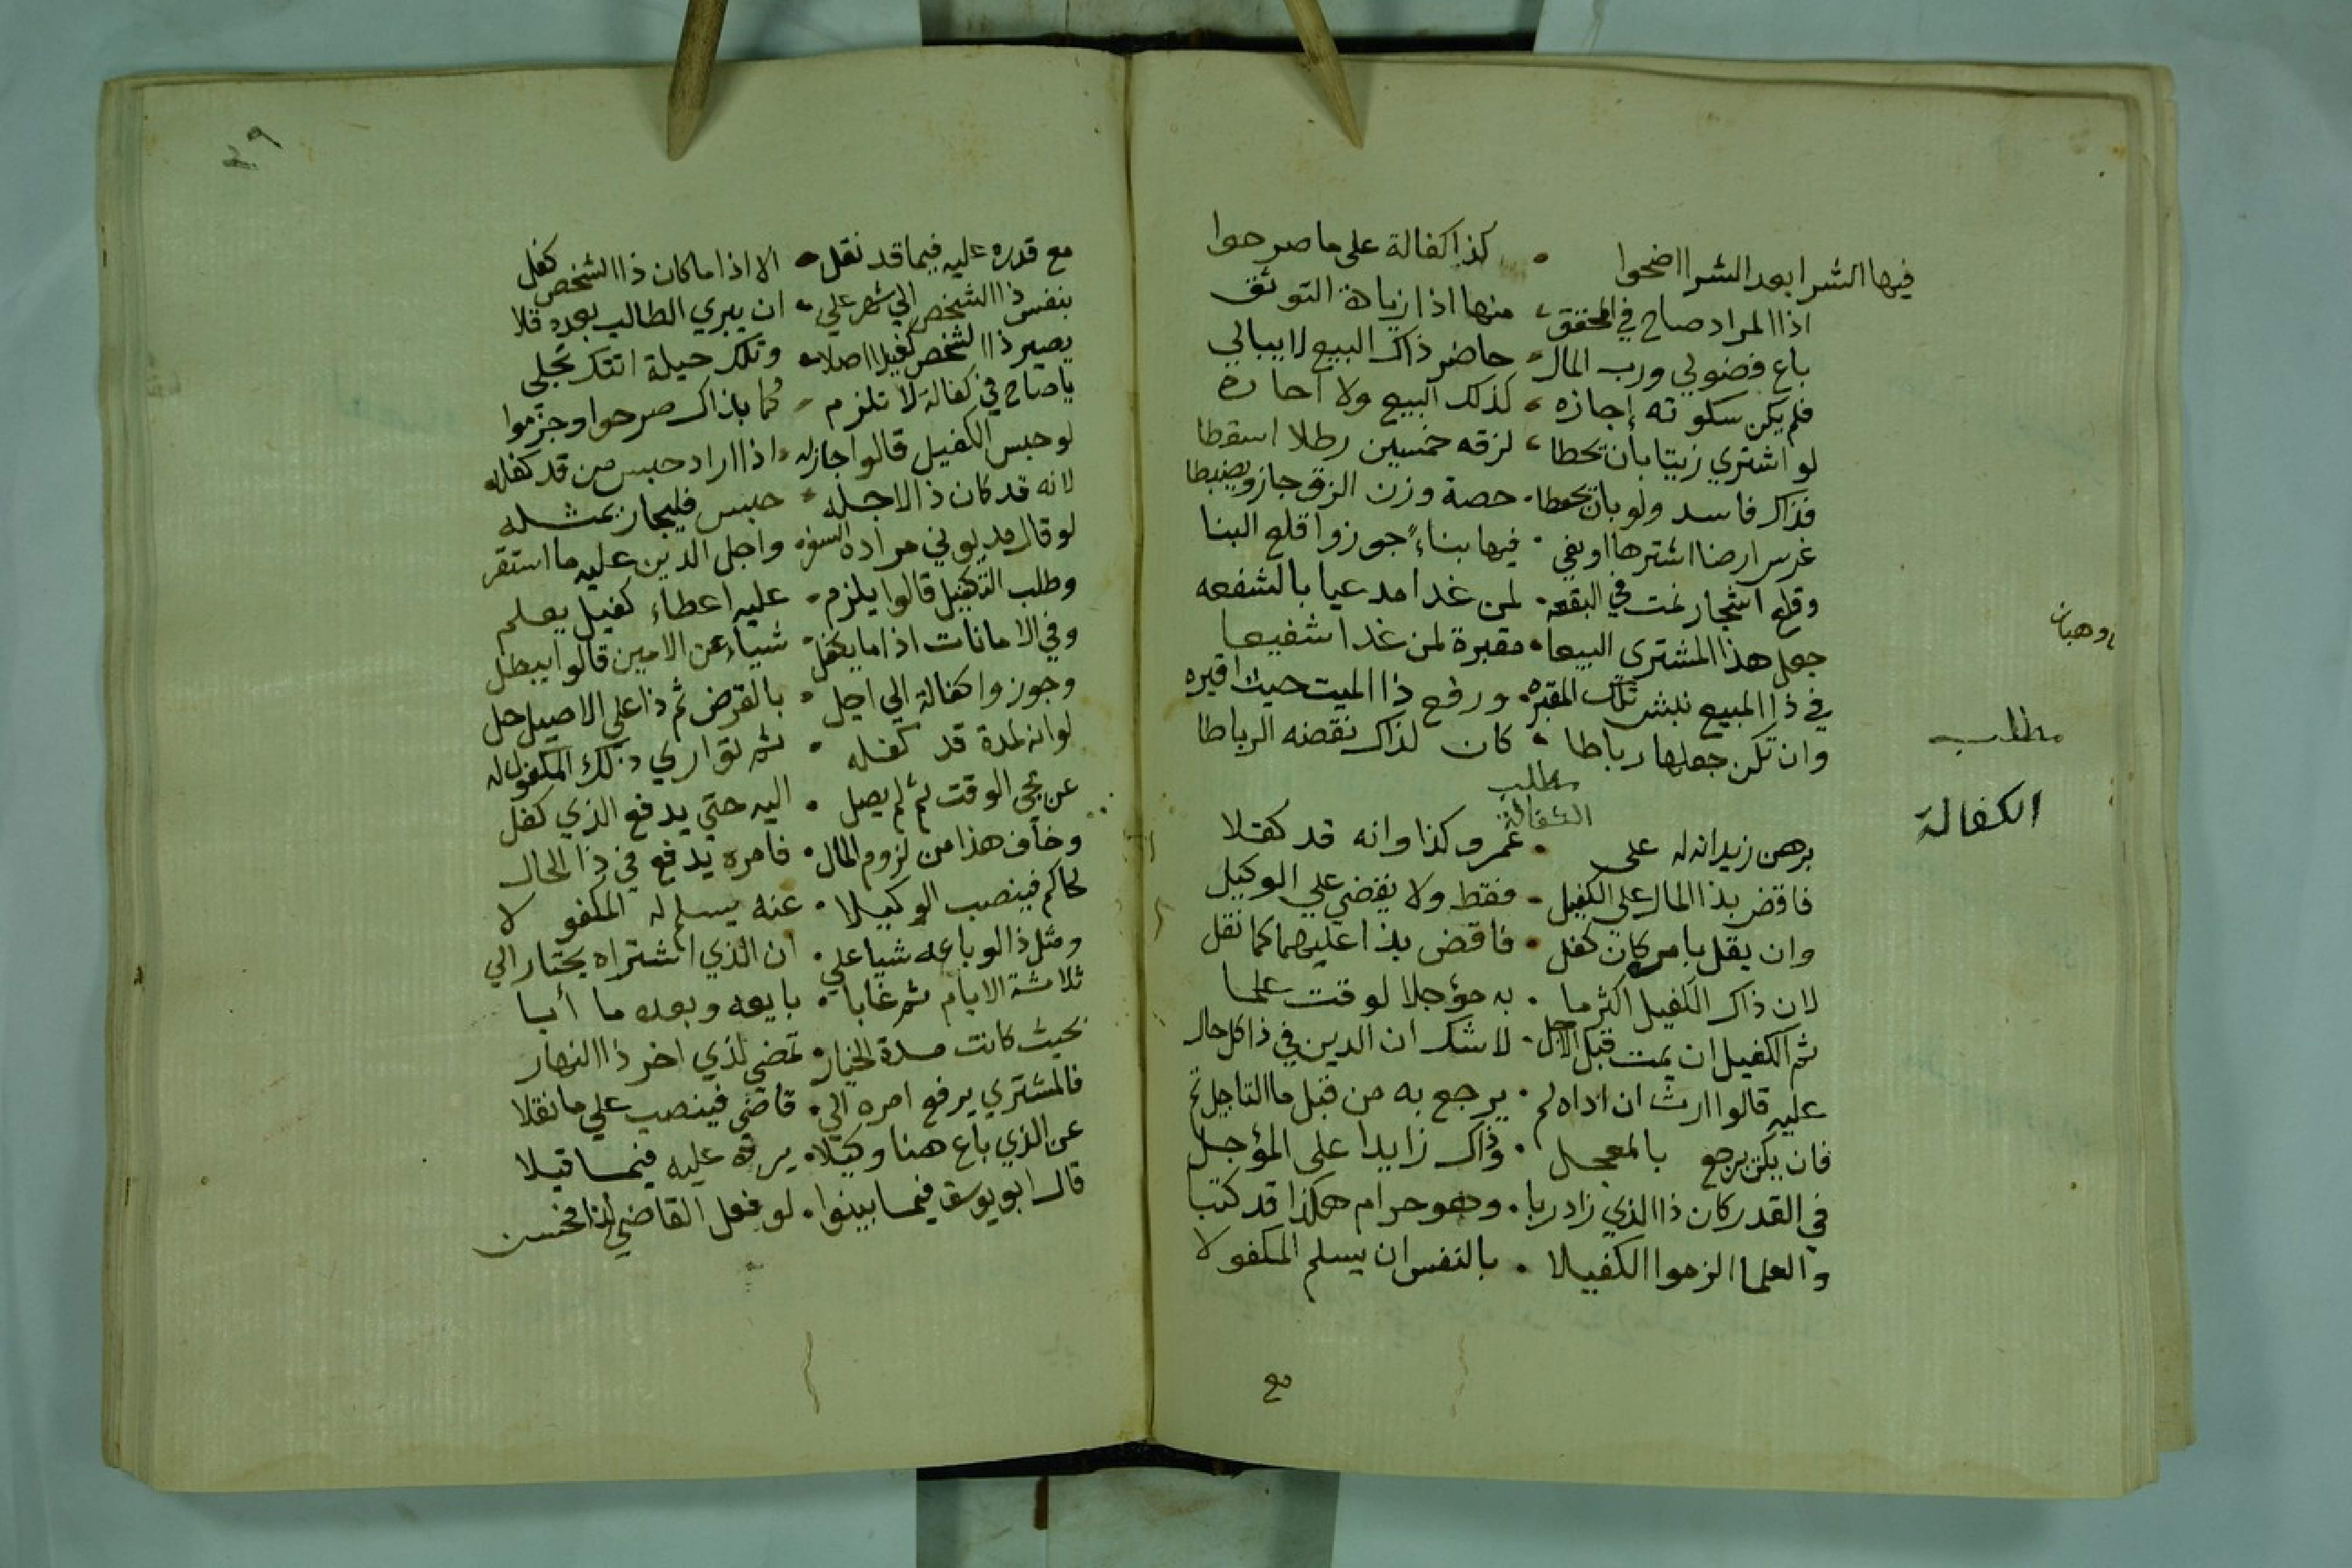 فيها الشرا بعد الشرا اضحوا • كذا كفالة على ما صرحوا
اذا المراد صاح في المحقق • منها اذا زيادة التوثق
باع فضولي ورب المال • حاضر ذاك البيع لا يبالي
فلم يكن سكوته إجازه • كذلك البيع ولا
لو اشتري زيتا بان يحطا • لزقه خمسين رطلا اسقطا
فذاك فاسد ولو بان يحطا • حصة وزن الزق جاز ويضبطا
غرس ارضا اشترها او بني • فيها بناءً جوزوا قلع البنا
وقلع اشجار نمت في البقعه • لمن غدا مدعيا بالشفعه
جعل هذا المشتري البيعا • مقبرة لمن غدا شفيعا
ابن وهبان
في ذا المبيع نبش تلك المقبره • ورفع ذا الميت حيث اقبره
وان تكن جعلها رباطا • كان لذاك نقضه الرباطا
مطلب
الكفالة
مطلب
الكفالة
برهن زيد انه له على • عمرو كذا وانه قد كفلا
فاقض بذا المال على الكفيل • فقط ولا يقضي علي الوكيل
وان يقل بامر كان كفل • فاقض بذا عليهما كما نقل
لان ذاك الكفيل اكثر ما • به مؤجلا لوقت علما
ثم الكفيل ان يمت قبل الاجل • لا شك ان الدين في ذا كل حال
عليه قالوا ارث ان اداه لم • يرجع به من قبل ما التاجيل تم
فان يكن يرجع بالمعجل • وذاك زايدا على المؤجل
في القدر كان ذا الذي زاد ربا • وهو حرام هكذا قد كتبا
والعلما الزموا الكفيلا • بالنفس ان يسلم المكفولا
مع
٢٩
مع قدره عليه فيما قد نقل • الا اذا ما كان ذا الشخص كفل
بنفس ذا الشخص الي شهر علي • ان يبري الطالب بعده فلا
يصير ذا الشخص كفيلا اصلا • وتلك حيلة اتتك تجلى
يا صاح في كفالة لا تلزم • كما بذاك صرحوا وجزموا
لو حبس الكفيل قالوا جاز له • اذا اراد حبس من قد كفله
لانه قد كان ذا لاجله • حبس فليجاز بمثله
لو قال مديوني مراده السفر • واجل الدين عليه ما استقر
وطلب التكفيل قالوا يلزم • عليه اعطاء كفيل يعلم
وفي الامانات اذا ما يكفل • شياء عن الامين قالوا يبطل
وجوزوا كفالة الي اجل • بالقرض ثم ذا على الاصيل حل
لو انه لمدة قد كفله • ثم تواري ذلك المكفول له
عن مجي الوقت ثم لم يصل • اليه حتي يدفع الذي كفل
وخاف هذا من لزوم المال • فامره يدفع في ذا الحال
لحاكم فينصب الوكيلا • عنه يسلم له المكفولا
ومثل ذا لو باعه شيا علي • ان الذي اشتراه يختار الي
ثلاثة الايام ثم غابا • بايعه وبعده ما أبا
بحيث كانت مدة الخيار • تمضي لذي اخر ذا النهار
فالمشتري يرفع امره الي • قاضي فينصب علي ما نقلا
عن الذي باع هنا وكيلا • يرده عليه فيما قيلا
قال ابو يوسف فيما بينوا • لو فعل القاضي لذا فحسن